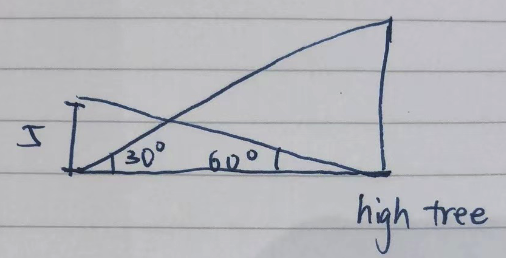 5
30°
60°
high tree